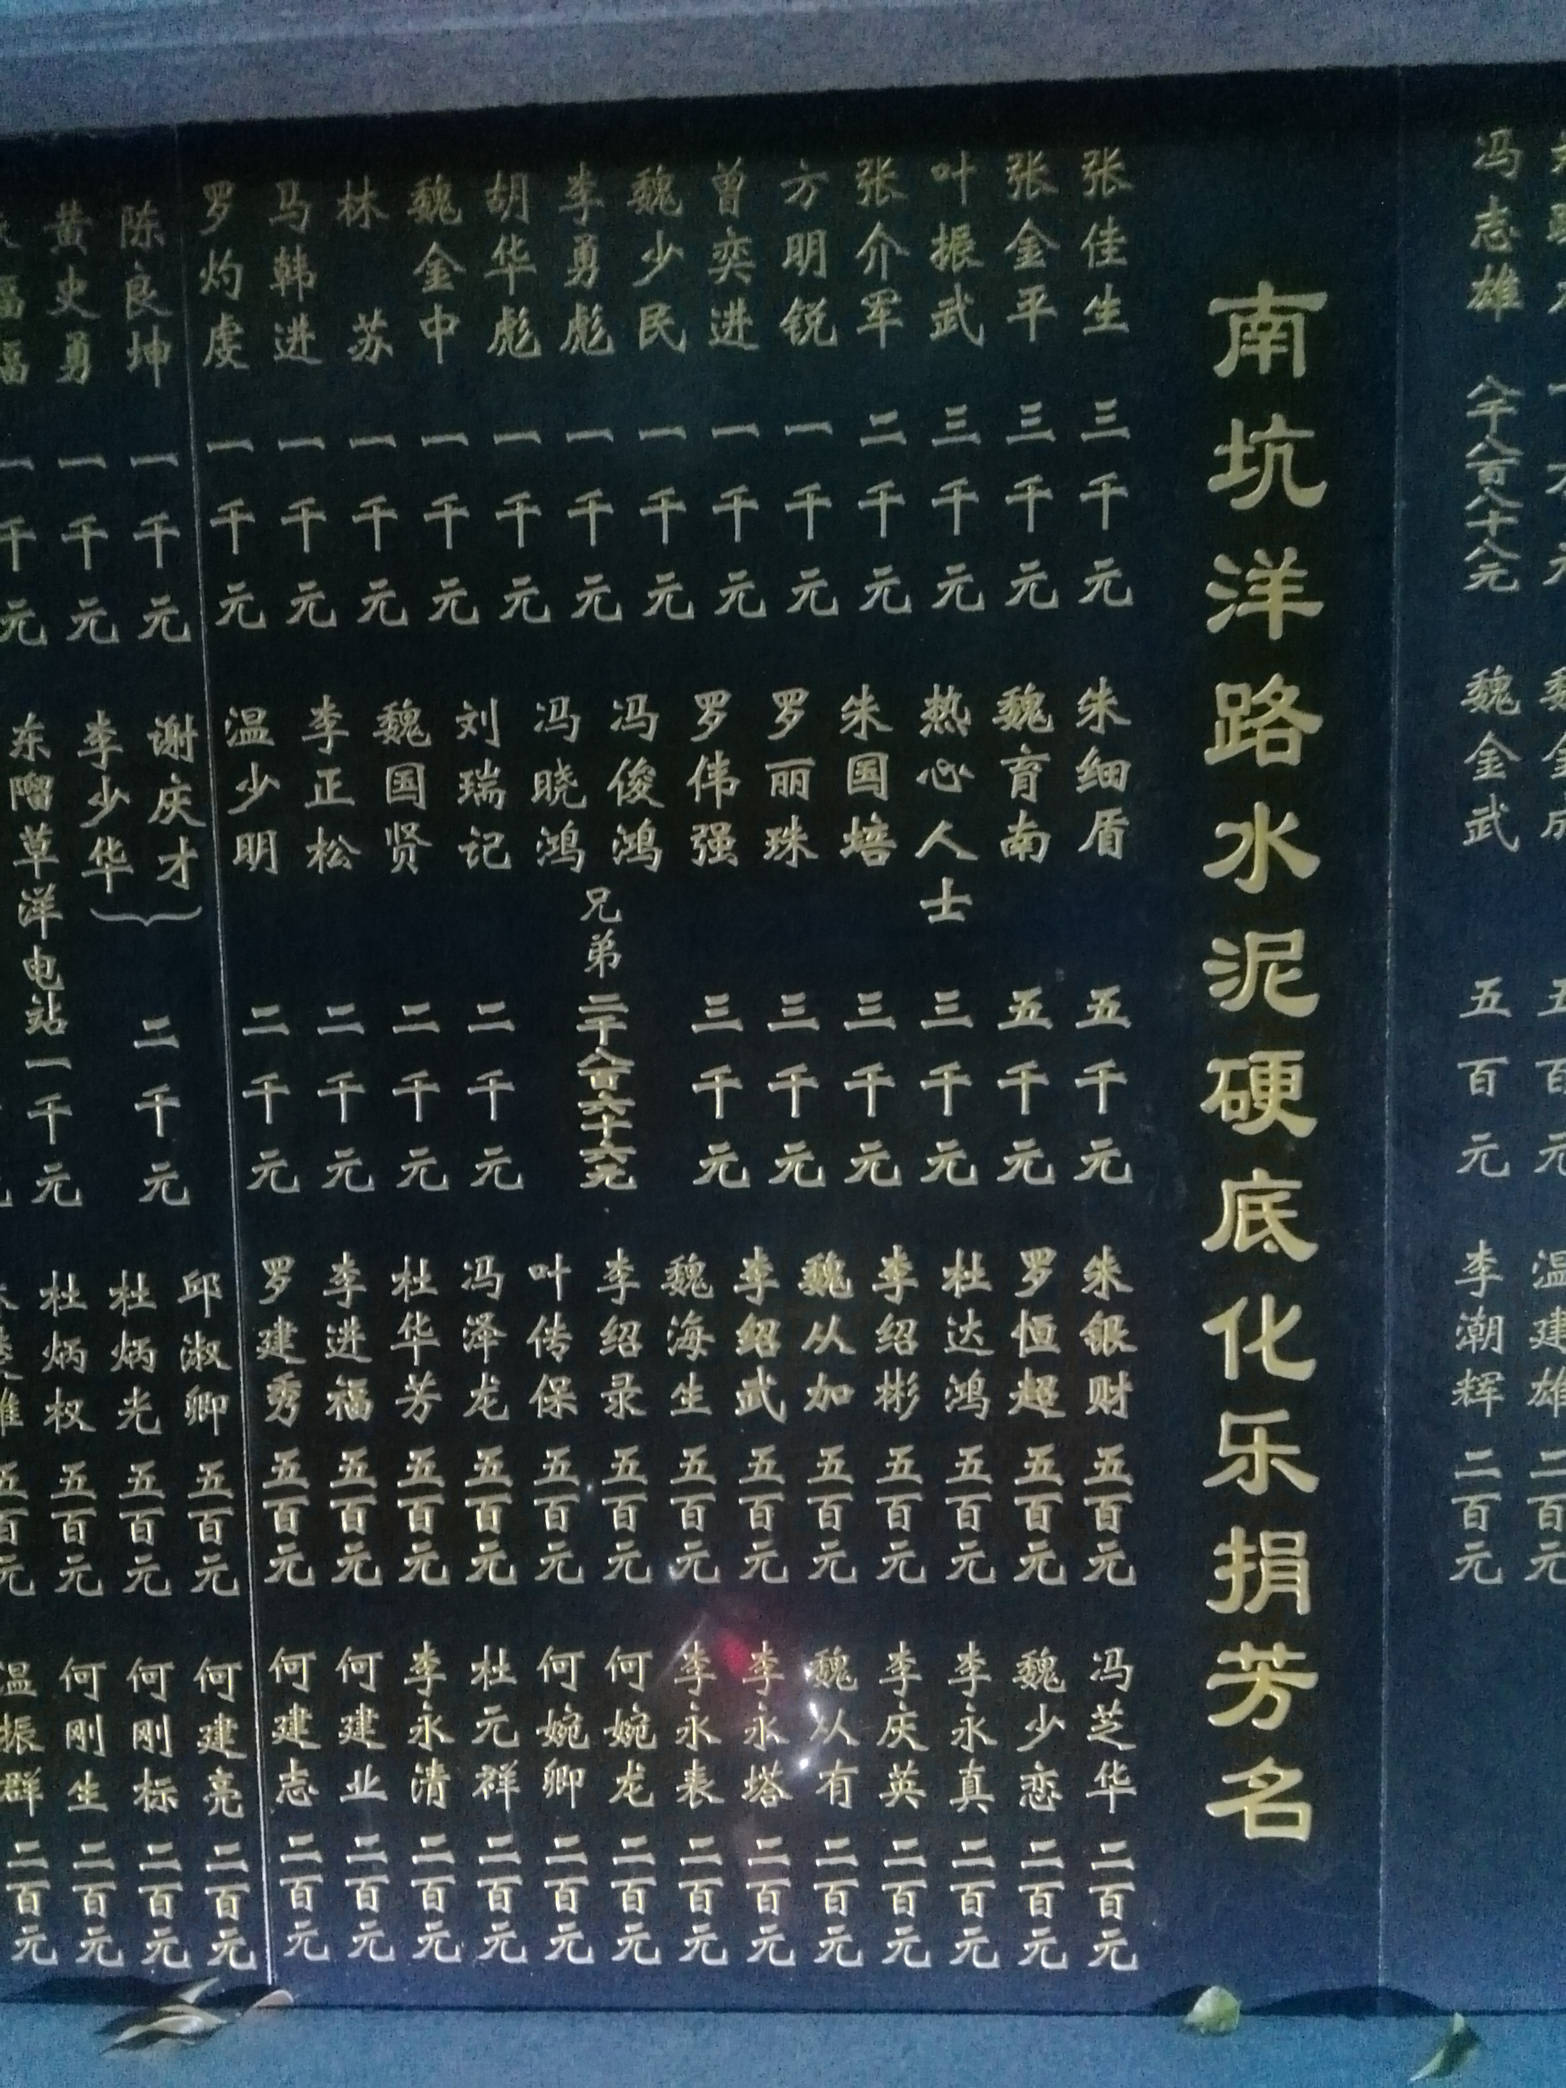 冯志雄 八千八百八十八元
魏金武 五百元
李潮辉 二百元
南坑洋路水泥硬底化乐捐芳名
张佳生 三千元
张金平 三千元
叶振武 三千元
张介军 二千元
方明锐 一千元
曾奕进 一千元
魏少民 一千元
李勇彪 一千元
胡华彪 一千元
魏金中 一千元
林苏 一千元
马韩进 一千元
罗灼虔 一千元
陈良坤 一千元
黄史勇 一千元
朱细盾 五千元
魏育南 五千元
热心人士 三千元
朱国培 三千元
罗丽珠 三千元
罗伟强 三千元
冯俊鸿
冯晓鸿
兄弟 二千八百六十六元
刘瑞记 二千元
魏国贤 二千元
李正松 二千元
温少明 二千元
谢庆才
李少华
二千元
东溜草洋电站一千元
朱银财 五百元
罗恒超 五百元
杜达鸿 五百元
李绍彬 五百元
魏从加 五百元
李绍武 五百元
魏海生 五百元
李绍录 五百元
叶传保 五百元
冯泽龙 五百元
杜华芳 五百元
李进福 五百元
罗建秀 五百元
邱淑卿 五百元
杜炳光 五百元
杜炳权 五百元
冯芝华 二百元
魏少恋 二百元
李永真 二百元
李庆英 二百元
魏从有 二百元
李永塔 二百元
李永表 二百元
何婉龙 二百元
何婉卿 二百元
杜元群 二百元
李永清 二百元
何建业 二百元
何建志 二百元
何建亮 二百元
何刚标 二百元
何刚生 二百元
温振群 二百元